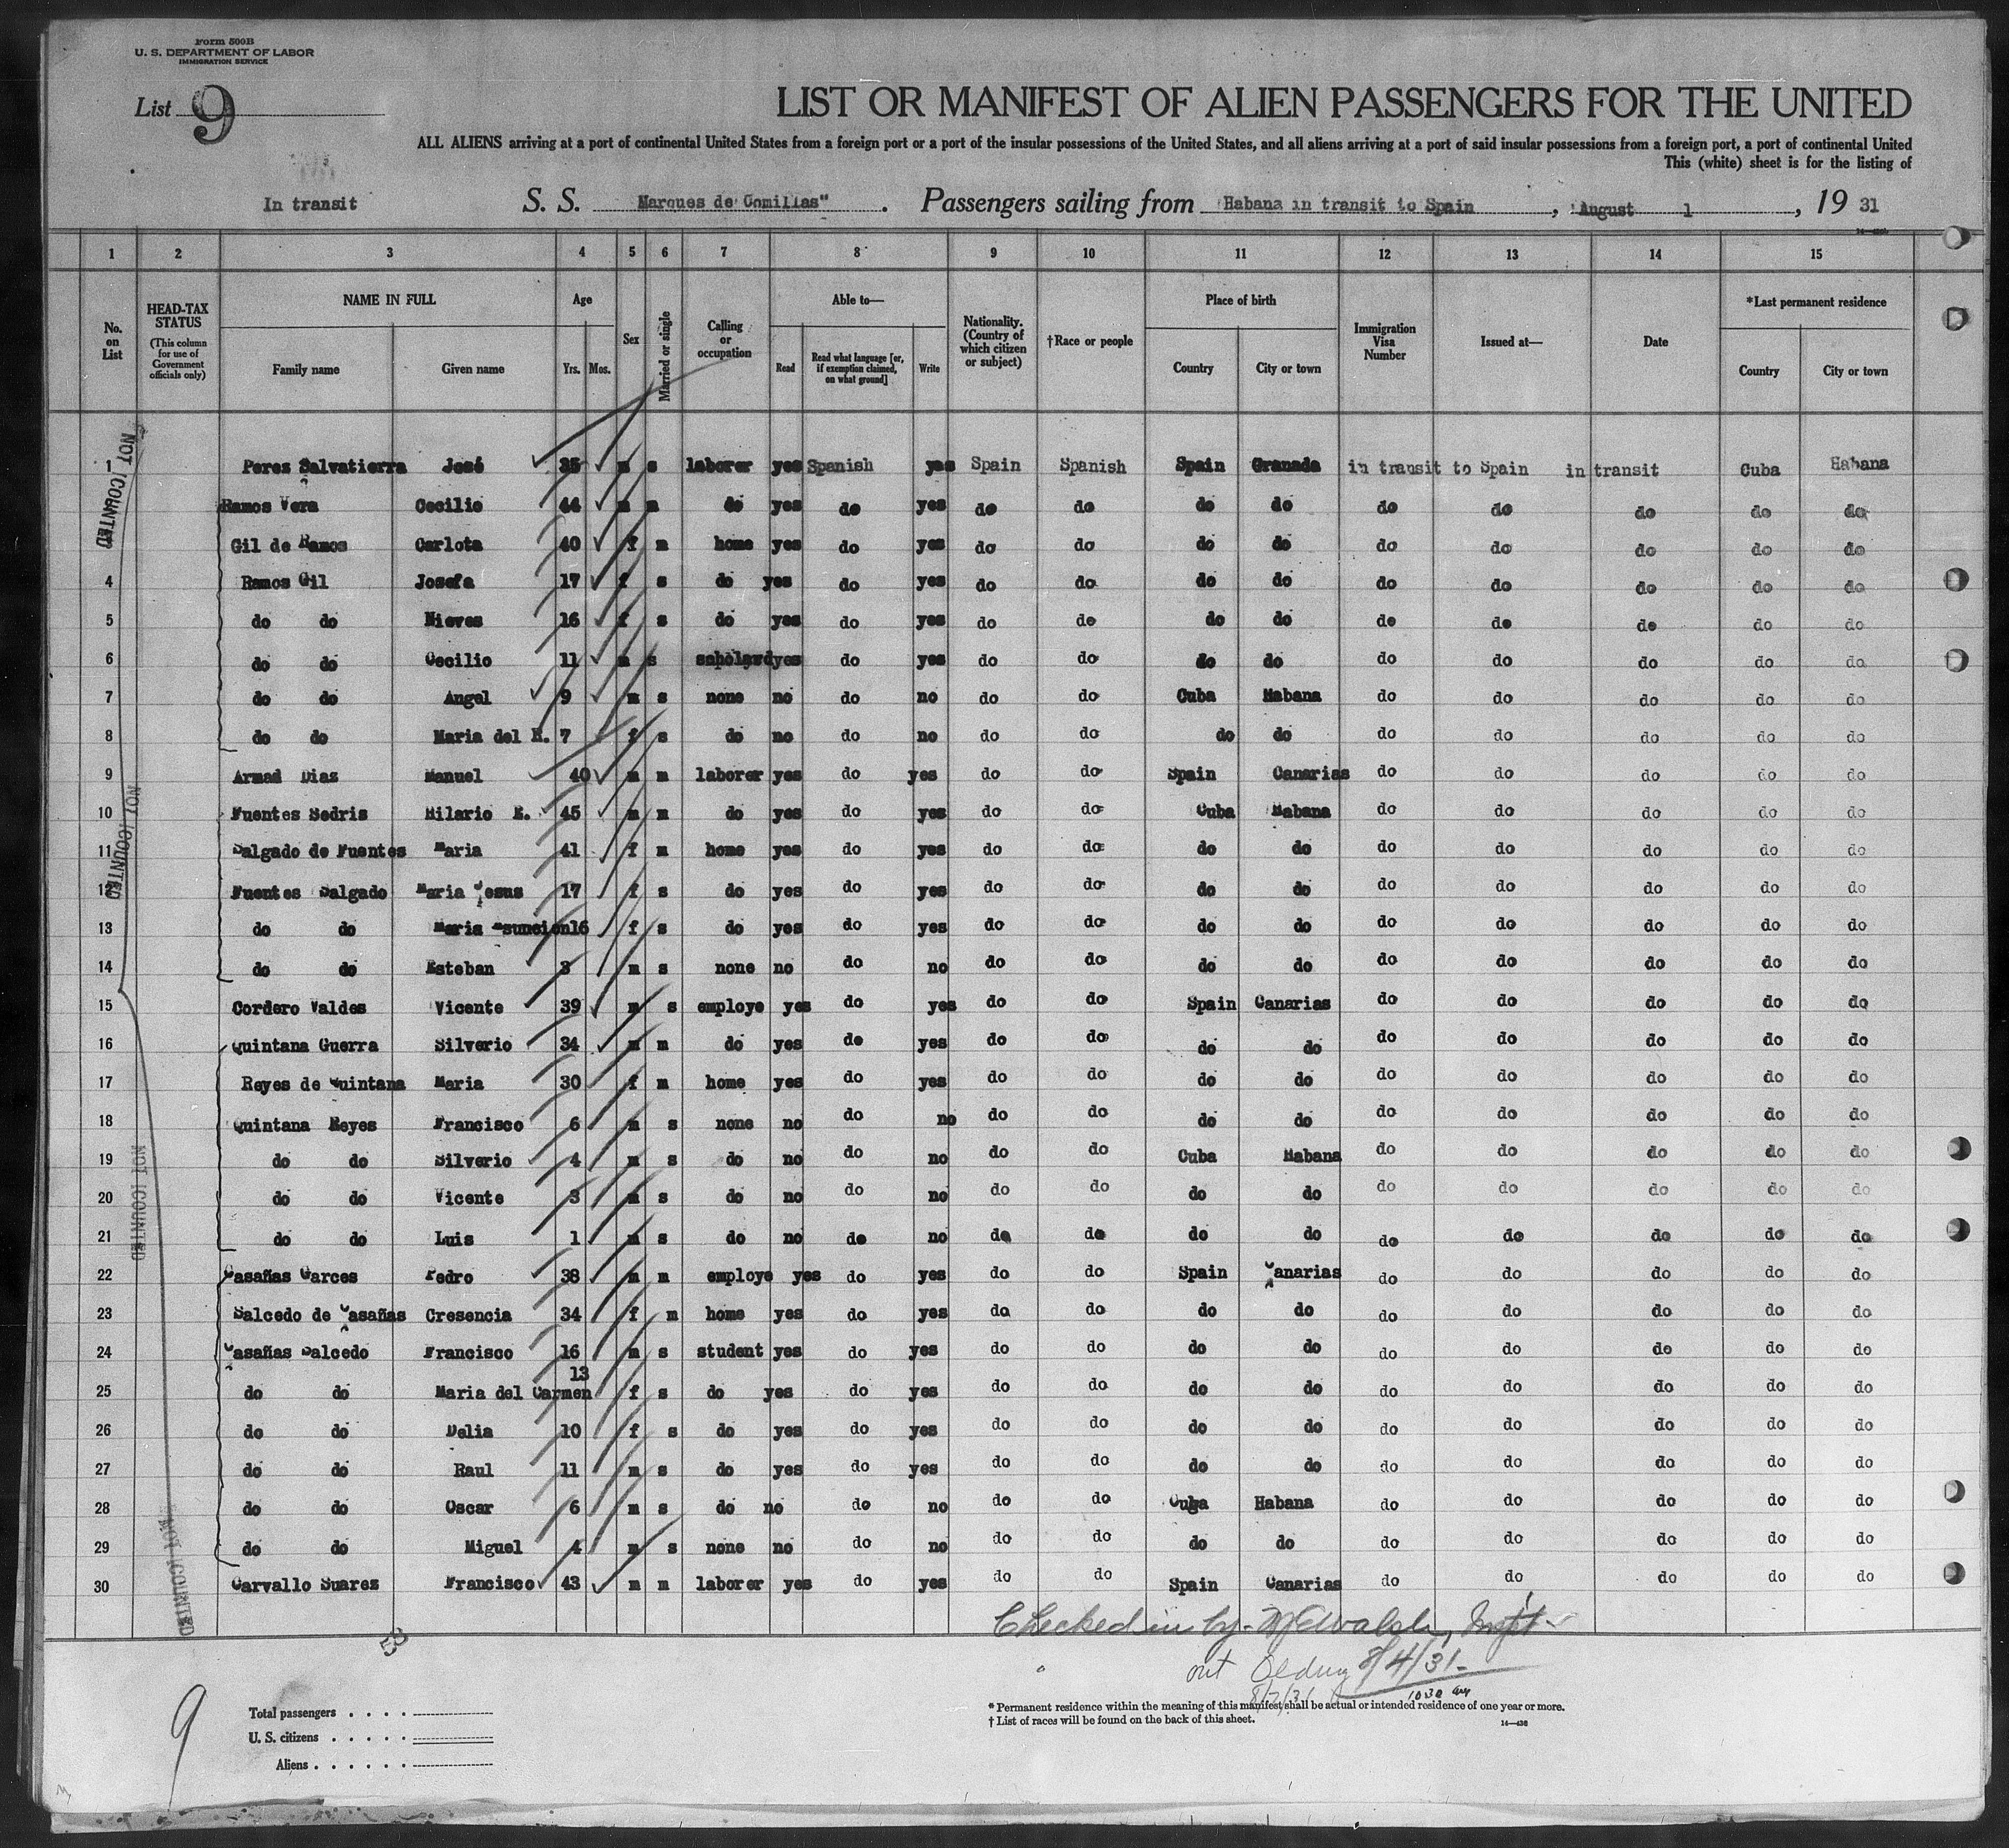 Form 500B
U. S. DEPARTMENT OF LABOR
IMMIGRATION SERVICE
List 9
LIST OR MANIFEST OF ALIEN PASSENGERS FOR THE UNITED
ALL ALIENS arriving at a port of continental United States from a foreign port or a port of the insular possessions of the United States, and all aliens arriving at a port of said insular possessions from a foreign port, a port of continental United
This (white) sheet is for the listing of
In transit S. S. Marques de Comillas" . Passengers sailing from Habana in transit to Spain , August 1 , 19 31
1 2 3 4 5 6 7 8 9 10 11 12 13 14 15
No. on List
HEAD-TAX STATUS
(This column for use of Government officials only)
NAME IN FULL
Family name Given name
Age
Yrs. Mos.
Sex
Married or single
Calling or occupation
Able to—
Read
Read what language [or, if exemption claimed, on what ground]
Write
Nationality. (Country of which citizen or subject)
†Race or people
Place of birth
Country City or town
Immigration Visa Number
Issued at—
Date
*Last permanent residence
Country City or town
1 Perez Salvatierra José 35 m s laborer yes Spanish yes Spain Spanish Spain Granada in transit to Spain in transit Cuba Habana
Ramos Vera Cecilio 44 m m do yes do yes do do do do do do do do do
Gil de Ramos Carlota 40 f m home yes do yes do do do do do do do do do
4 Ramos Gil Josefa 17 f s do yes do yes do do do do do do do do do
5 do do Nieves 16 f s do yes do yes do do do do do do do do do
6 do do Cecilio 11 m s yes do yes do do do do do do do do do
7 do do Angel 9 m s none no do no do do Cuba Habana do do do do do
8 do do Maria del R. 7 f s do no do no do do do do do do do do do
9 Armad Diaz Manuel 40 m m laborer yes do yes do do Spain Canarias do do do do do
10 Fuentes Sedris Hilario E. 45 m m do yes do yes do do Cuba Habana do do do do do
11 Salgado de Fuentes Maria 41 f m home yes do yes do do do do do do do do do
12 Fuentes Salgado Maria Jesus 17 f s do yes do yes do do do do do do do do do
13 do do Maria Asuncion 16 f s do yes do yes do do do do do do do do do
14 do do Esteban 3 m s none no do no do do do do do do do do do
15 Cordero Valdes Vicente 39 m s employe yes do yes do do Spain Canarias do do do do do
16 Quintana Guerra Silverio 34 m m do yes do yes do do do do do do do do do
17 Reyes de Quintana Maria 30 f m home yes do yes do do do do do do do do do
18 Quintana Reyes Francisco 6 m s none no do no do do do do do do do do do
19 do do Silverio 4 m s do no do no do do Cuba Habana do do do do do
20 do do Vicente 3 m s do no do no do do do do do do do do do
21 do do Luis 1 m s do no do no do do do do do do do do do
22 Casañas Garces Pedro 38 m m employe yes do yes do do Spain Canarias do do do do do
23 Salcedo de Casañas Cresencia 34 f m home yes do yes do do do do do do do do do
24 Casañas Salcedo Francisco 16 m s student yes do yes do do do do do do do do do
25 do do Maria del Carmen 13 f s do yes do yes do do do do do do do do do
26 do do Delia 10 f s do yes do yes do do do do do do do do do
27 do do Raul 11 m s do yes do yes do do do do do do do do do
28 do do Oscar 6 m s do no do no do do Cuba Habana do do do do do
29 do do Miguel 4 m s none no do no do do do do do do do do do
30 Carvallo Suarez Francisco 43 m m laborer yes do yes do do Spain Canarias do do do do do
NOT COUNTED
NOT COUNTED
NOT COUNTED
NOT COUNTED
Checked in by
out 8/4/31
1030 am
9
Total passengers
U. S. citizens
Aliens
* Permanent residence within the meaning of this manifest shall be actual or intended residence of one year or more.
† List of races will be found on the back of this sheet.